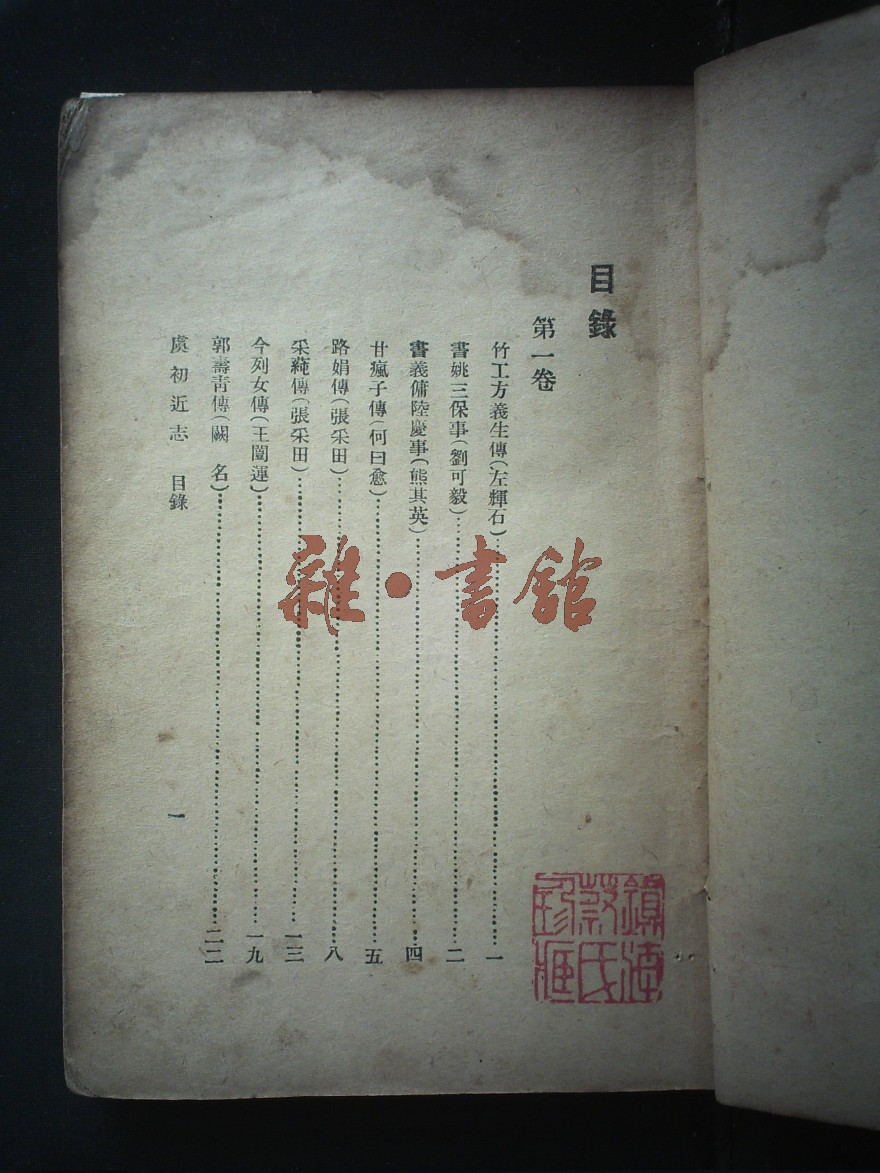 目錄
第一卷
竹工方義生傳(左輝石)……一
書姚三保事(劉可毅)……二
書義傭陸慶事(熊其英)……四
甘瘋子傳(何曰愈)……五
路娟傳(張采田)……八
采蘞傳(張采田)……一三
今列女傳(王闓運)……一九
郭壽青傳(闕 名)……二二
虞初近志 目錄
一
雜·書館
鎮海
蔡氏
珍藏